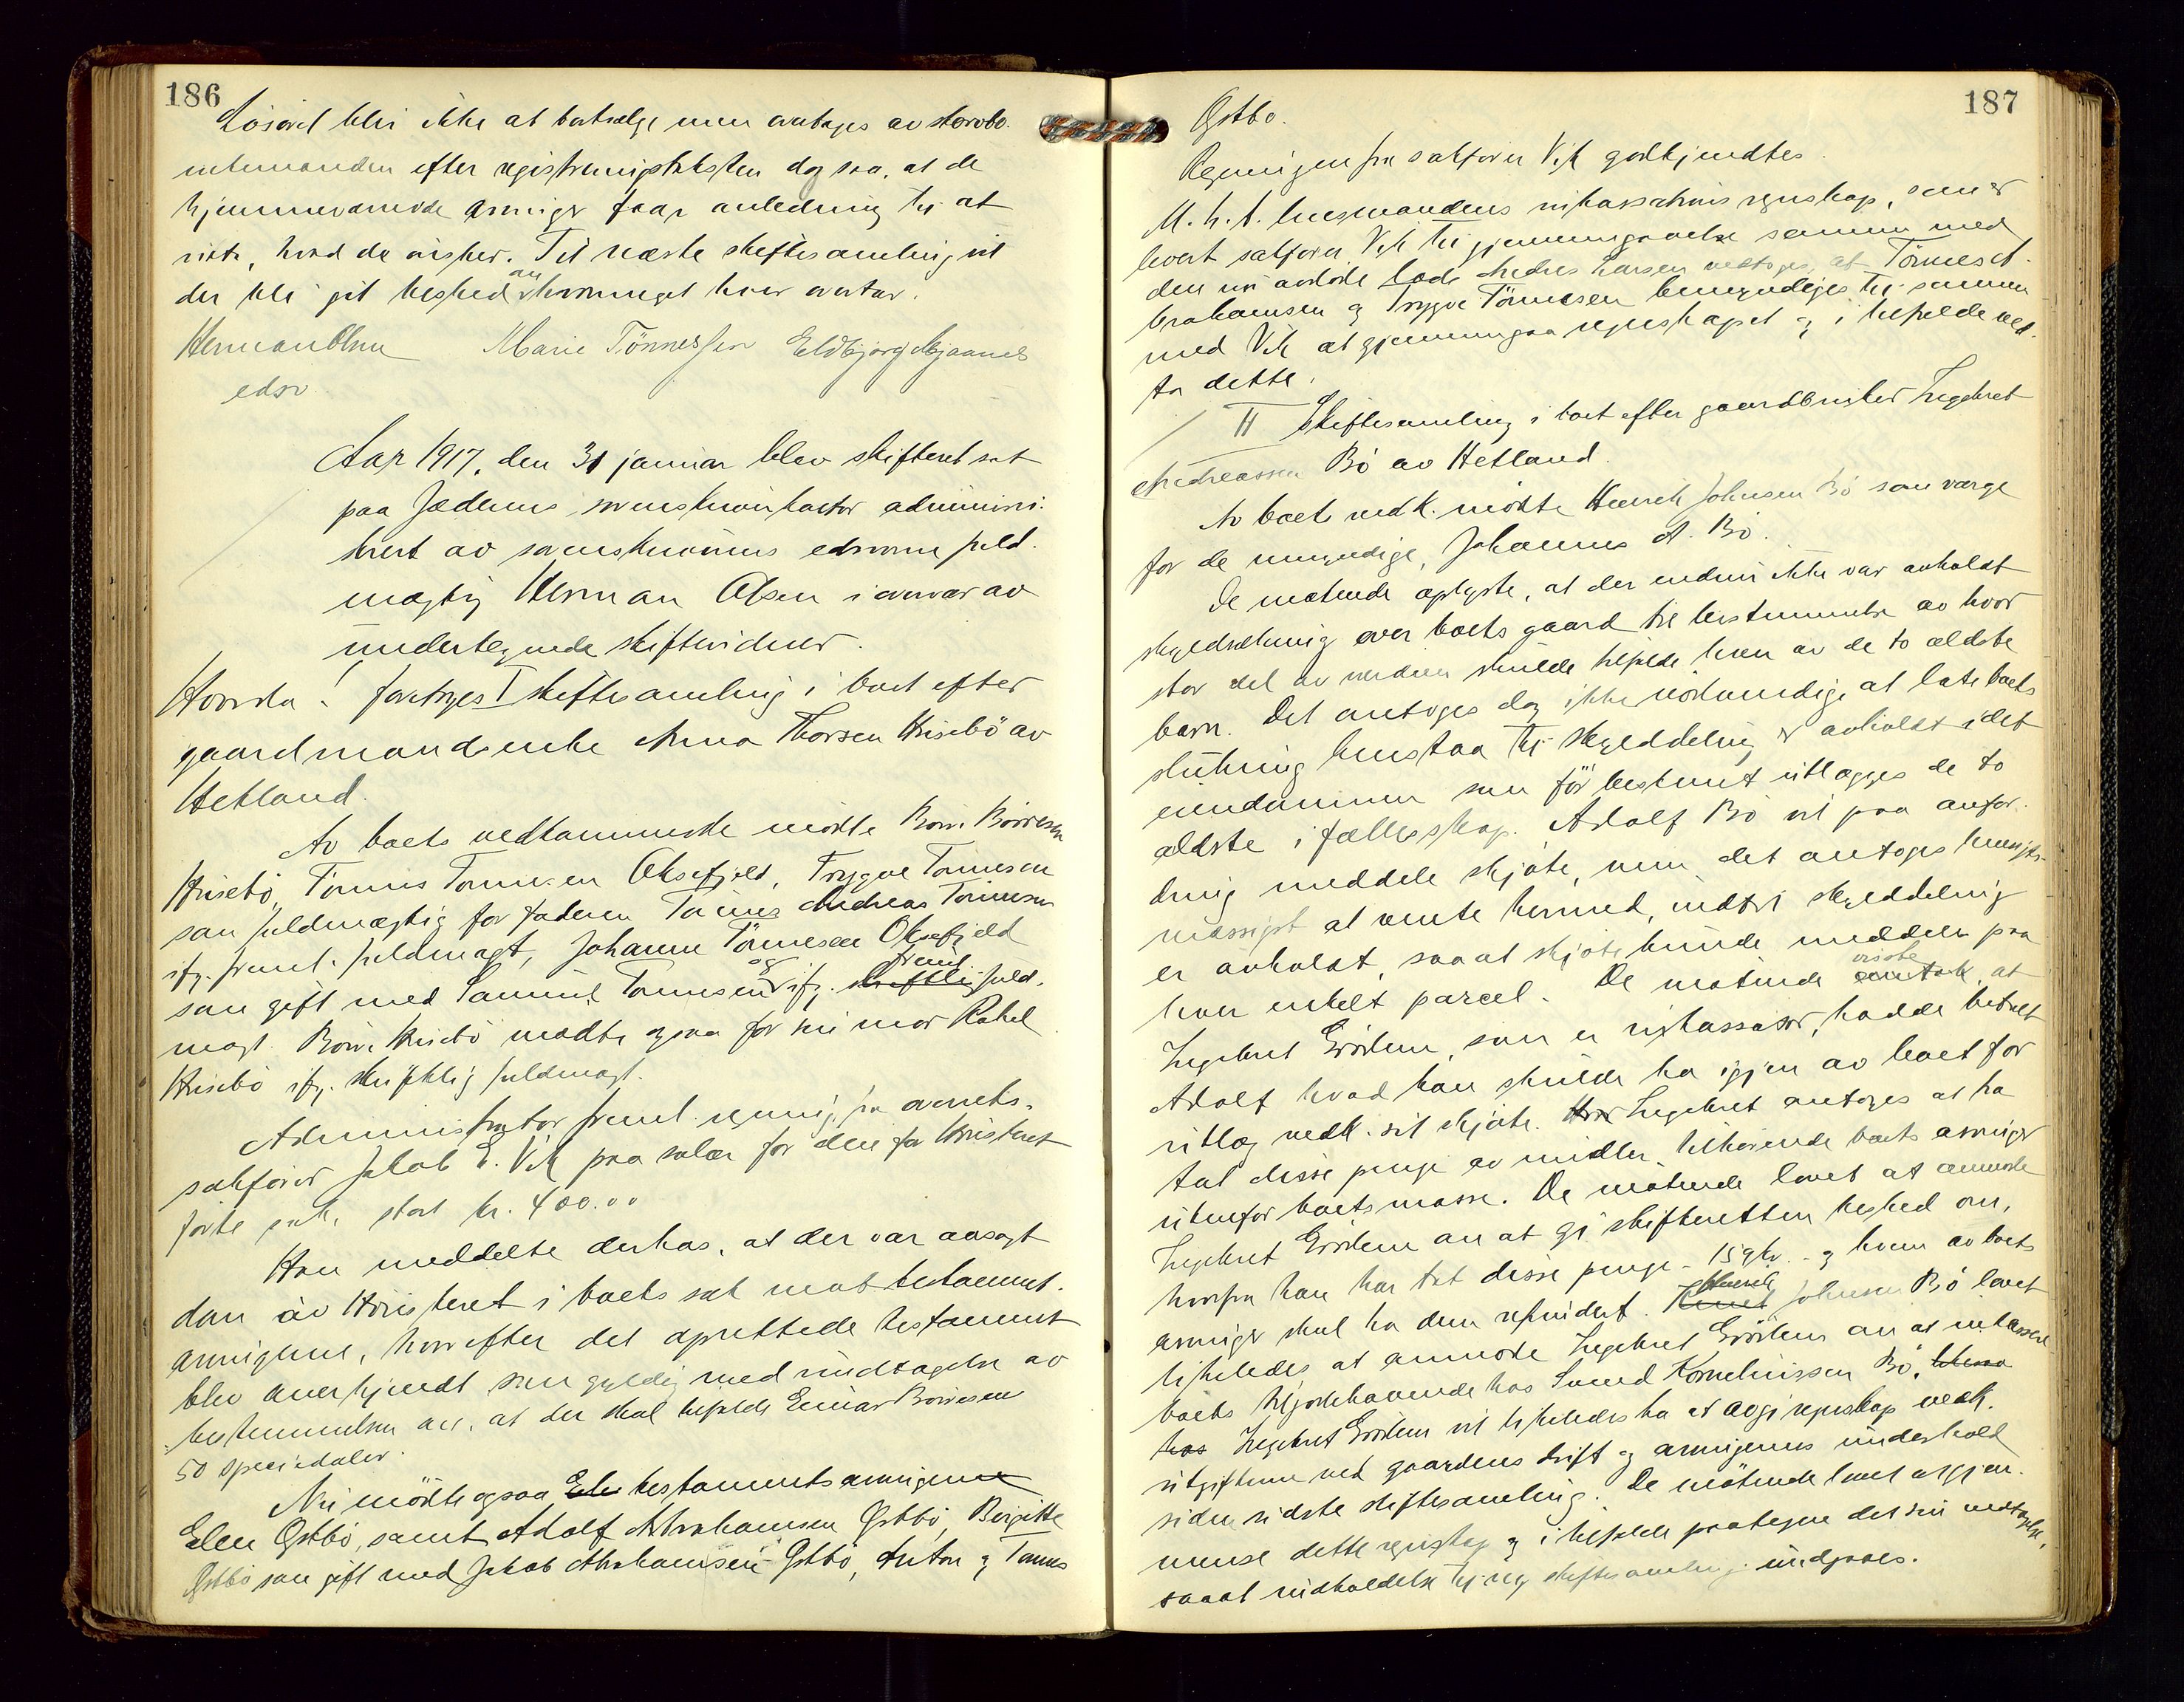 186
Løsøret blir ikke at bortsælge men overtages av storebo
enkemanden efter registreringstaksten dog saa, at de
hjemmeværende arvinger faar anledning til at
ta, hvad de ønsker. Til næste skiftesamling vil
der bli git besked om hvormeget hver overtar.
Herman Olsen Marie Tönnessen Eldbjørg Mjaanes
edsv.
Aar 1917, den 31 januar blev skifteret sat
paa Jæderens sorenskriverkontor admini-
strert av sorenskriverens edsvorne fuld-
mægtig Herman Olsen i overvær av
undertegnede skiftevidner.
Hvorda! foretoges I skiftesamling i boet efter
gaardmandsenke Anna Thorsen Husebö av
Hetland.
Av boets vedkommende mödte Börre Börresen
Husebö, Tönnes Tönnesen Oksefjeld, Trygve Tönnesen
som fuldmægtig for faderen Tönnes Andreas Tönnesen
ifg. freml. fuldmagt, Johanne Tönnesen Oksefjeld
som gift med Samuel Tönnesen og ifg. skriftlig freml. fuld-
magt. Börre Husebö mödte ogsaa for sin mor Rakel
Husebö ifg. skriftlig fuldmagt.
Administrator freml. regning fra overrets-
sakförer Jakob E. Vik paa salær for den for Höiesteret
förte sak, stor kr. 400.00
Han meddelte derhos, at der var avsagt
dom av Höiesteret i boets sak mot testaments-
arvingerne, hvorefter det oprettede testament
blev anerkjendt som gyldig med undtagelse av
bestemmelsen om, at der skal tilfalde Einar Börresen
50 speciedaler.
Nu mödte ogsaa Ele testamentsarvingerne
Elen Østbö, samt Adolf Abrahamsen Østbö, Birgitte
Østbö som gift med Jakob Abrahamsen Østbö, Anton og Tønnes
187
Østbö.
Regningen fra sakförer Vik godkjendtes.
M. h. t. lensmandens inkassations regnskap, som er
levert sakförer Vik til gjennemgaaelse sammen med
den nu avdöde Lods Andres Larsen vedtoges, at Tönnes A-
brahamsen og Trygve Tönnesen bemyndiges til sammen
med Vik at gjennemgaa regnskapet og i tilfælde ved-
ta dette.
II Skiftesamling i boet efter gaardbruker Ingebret
Andreassen Bö av Hetland.
Av boets vedk. mödte Henrik Johnsen Bö som værge
for de umyndige, Johannes A. Bö.
De mötende oplyste, at der endnu ikke var avholdt
skyldsætning over boets gaard til bestemmelse av hvor
stor del av værdien skulde tilfalde hver av de to ældste
barn. Det antoges dog ikke nödvendig at late boets
slutning henstaa til skylddeling er avholdt idet
eiendommen som för bestemt utlægges de to
ældste i fællesskap. Adolf Bö vil paa anfor-
dring meddele skjöte, men det antoges hensigts-
mæssigst at vente hermed, indtil skylddeling
er avholdt, saaat skjöte kunde meddeles paa
hver enkelt parcel. De mötende antok visste, at
Ingebret Erödien, som er inkassator, hadde betalt
Adolf hvad han skulde ha igjen av boet for
utlæg vedk. sit skjöte. Hvor Ingebret antoges at ha
tat disse penge av midler tilhörende boets arvinger
utenfor boets masse. De mötende lovet at anmode
Ingebret Erödien om at gi skifteretten besked om,
hvorfra han har tat disse penge - 159 kr. - og hvem av boets
arvinger skal ha dem refundert. Henrik Johnsen Bö lovet
likeledes at anmode Ingebret Erödien om at inkassere
boets tilgodehavende hos Svend Kornelinssen Bö,
hos Ingebret Erödien vil likeledes ha at avgi regnskap vedk.
utgifterne ved gaardens drift og arvingernes underhold
siden sidste skiftesamling. De mötende lovet at gjen-
nemse dette regnskap og i tilfælde paategne det sin vedtagelse,
saaat indkaldelse til ny skiftesamling undgaaes.